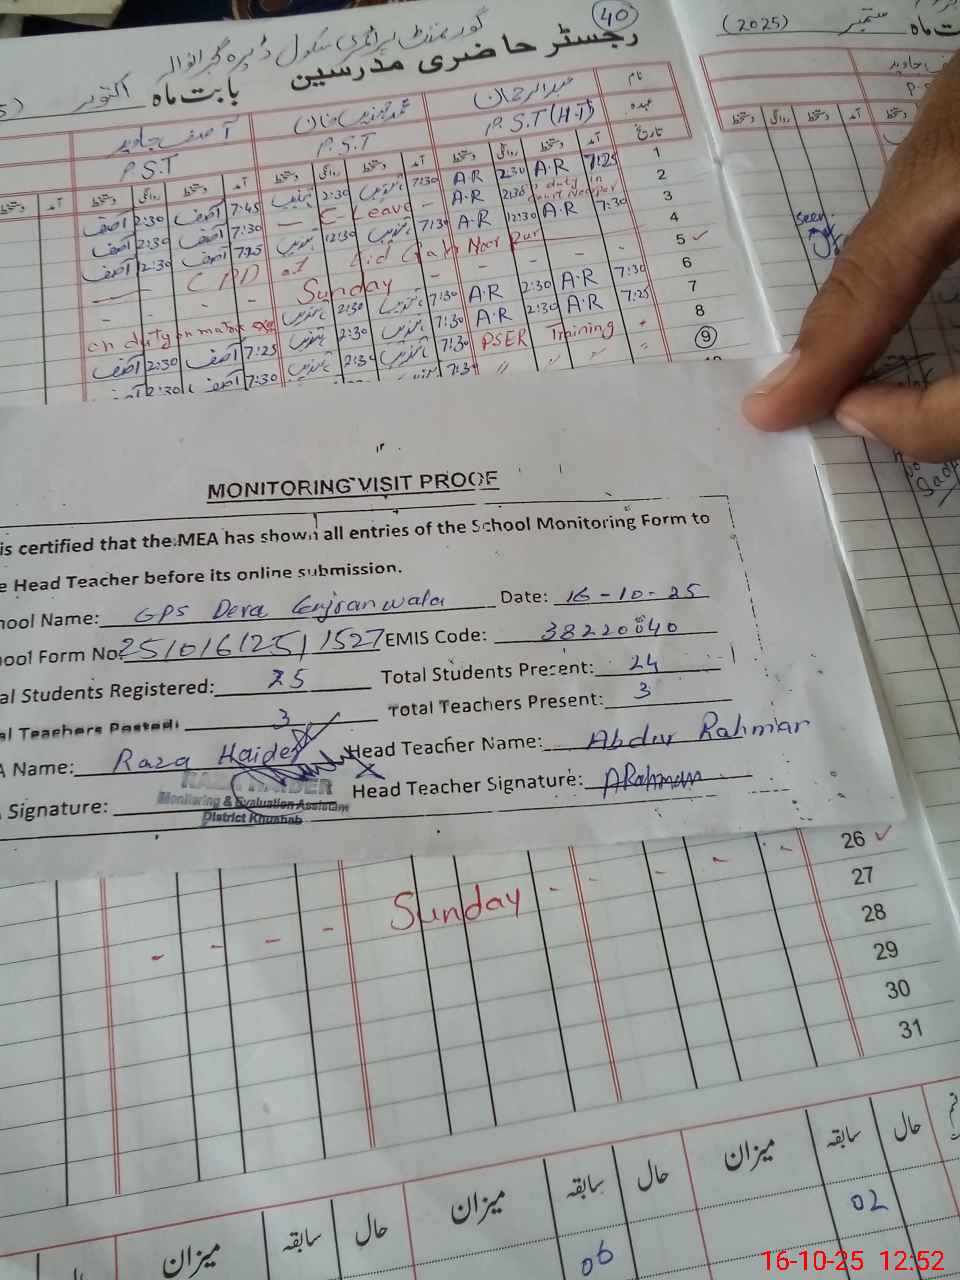 40
گورنمنٹ پرائمری سکول ڈیرہ گجرانوالہ
رجسٹر حاضری مدرسین بابت ماہ اکتوبر
ماہ ستمبر (2025)
نام عبدالرحمان آصف جاوید
عہدہ P.S.T (H.T) P.S.T P.S.T
تاریخ آمد دستخط روانگی دستخط آمد دستخط روانگی دستخط آمد دستخط روانگی دستخط آمد دستخط
1 7:25 A.R 2:30 A.R 7:30 2:30 7:45 آصف 2:30 آصف
2 duty in A.R - C-Leave - 7:30 آصف 2:30 آصف
3 7:30 A.R 12:30 A.R 7:30 12:30 7:25 آصف 12:30 آصف
4 (PI) at Eid Gah Noor Pur
5 Sunday
6 7:30 A.R 2:30 A.R 7:30 2:30 on duty on
7 7:25 A.R 2:30 A.R 7:30 2:30 7:25 آصف 2:30 آصف
8 PSER Training 7:30 2:30 7:30 آصف 2:30 آصف
9 7:30
seen
MONITORING VISIT PROOF
is certified that the MEA has shown all entries of the School Monitoring Form to
Head Teacher before its online submission.
Name: GPS Dera Gujranwala Date: 16-10-25
Form No: 25/016/25/1527 EMIS Code: 38220040
Students Registered: 25 Total Students Present: 24
Teachers Posted: 3 Total Teachers Present: 3
Name: Raza Haider Head Teacher Name: Abdur Rahman
Signature: Head Teacher Signature: ARahman
RAZA HAIDER
Monitoring & Evaluation Assistant
District Khushab
26 Sunday
27
28
29
30
31
حال سابقہ میزان حال سابقہ میزان حال سابقہ میزان حال
02 06
16-10-25 12:52